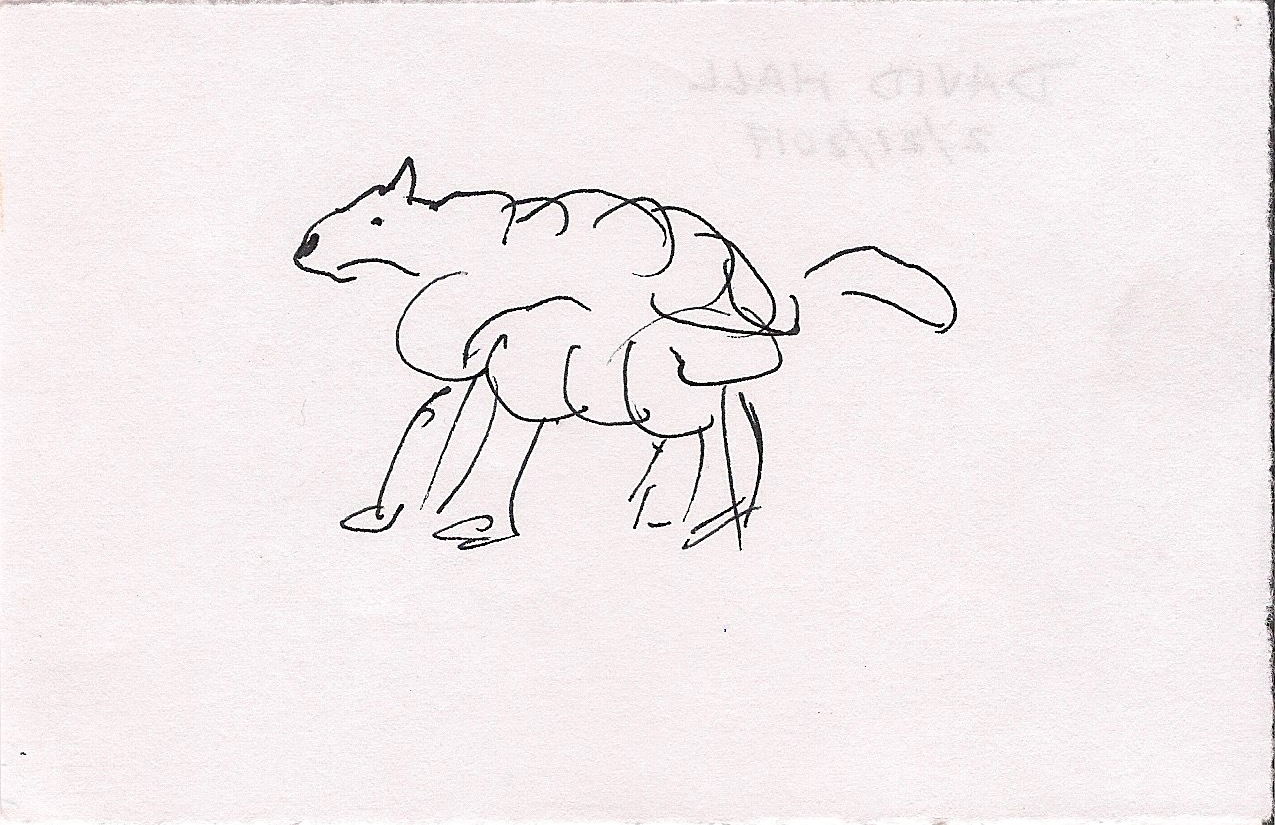 DAVID HALL
2/21/2017